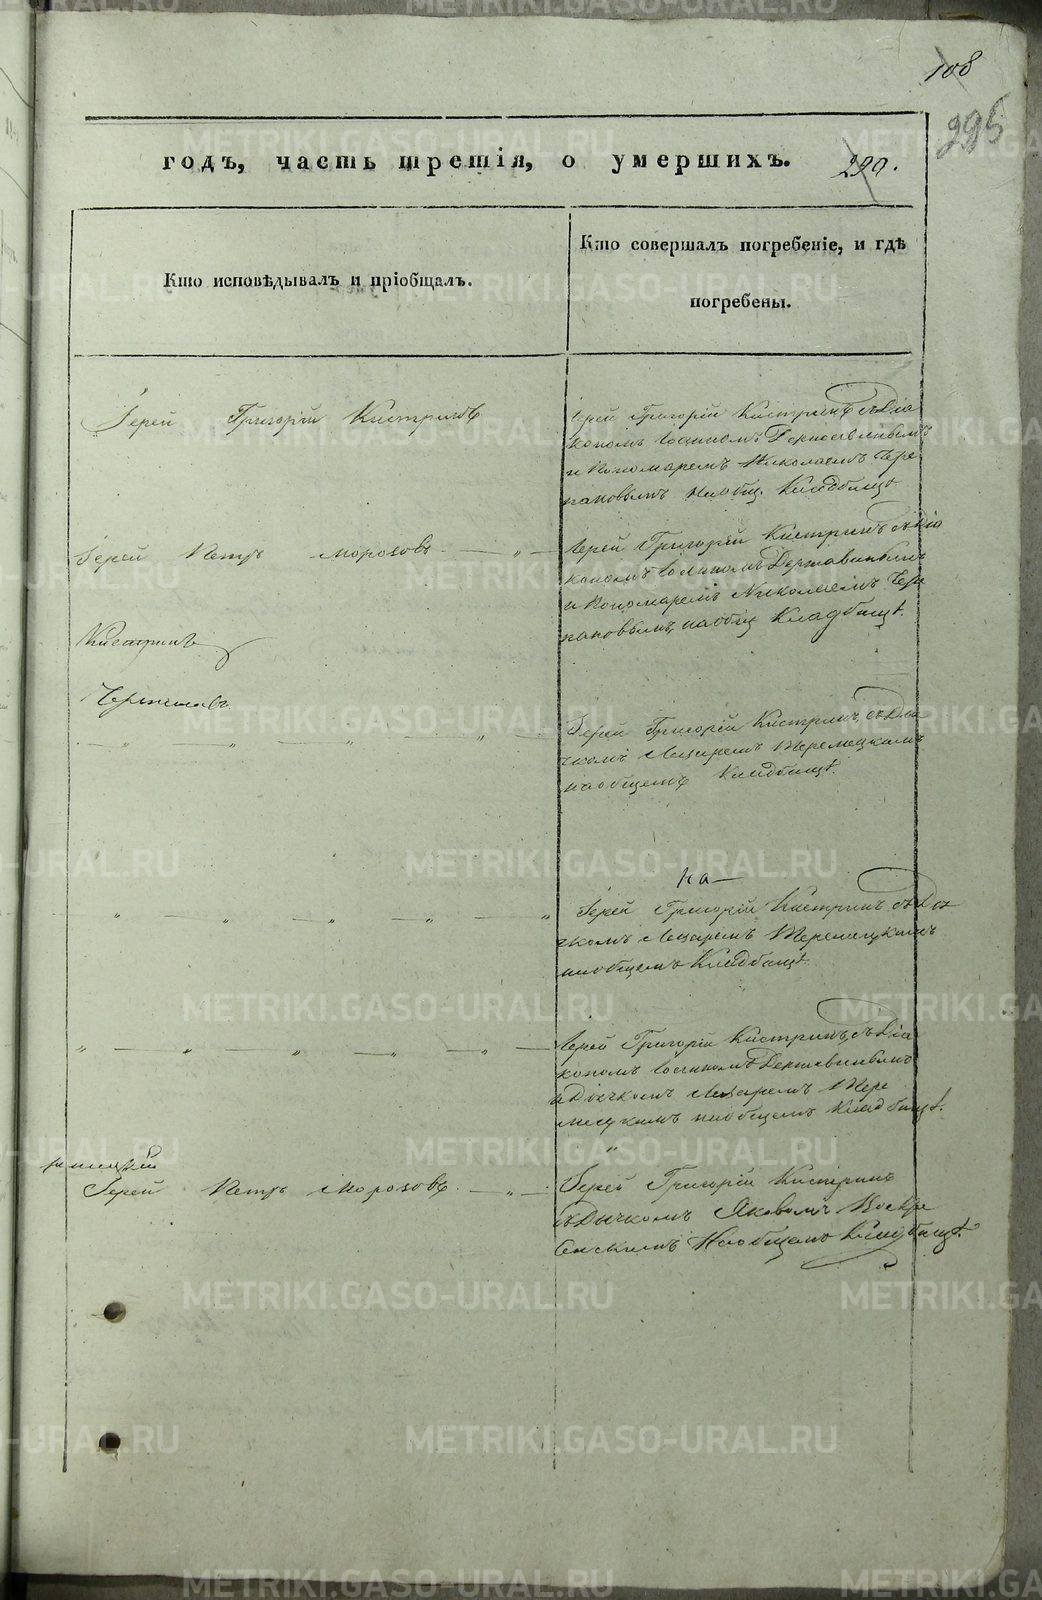 108
295
годъ, часть третія, о умершихъ.
290.
Кто исповѣдывалъ и пріобщалъ.
Кто совершалъ погребеніе, и гдѣ
погребены.
Іерей Григорій Кистринъ
Іерей Григорій Кистринъ съ Діа
кономъ Державинымъ
и Пономаремъ Николаемъ Чере
пановымъ на общ. Кладбищѣ
Іерей Петръ Морозовъ
Іерей Григорій Кистринъ съ Діа
кономъ Державинымъ
и Пономаремъ Николаемъ Чере
пановымъ, на общ Кладбищѣ.
Кистринъ
Іерей Григорій Кистринъ, съ Дья
чкомъ
на общемъ Кладбищѣ.
на
Іерей Григорій Кистринъ съ Дья
чкомъ
на общемъ Кладбищѣ.
Іерей Григорій Кистринъ, съ Діа
кономъ Державинымъ
и Дьячкомъ
на общемъ Кладбищѣ.
Іерей Петръ Морозовъ
Іерей Григорій Кистринъ
съ Дьячкомъ Яковомъ Воскре
сенскимъ На общемъ Кладбищѣ.
METRIKI.GASO-URAL.RU